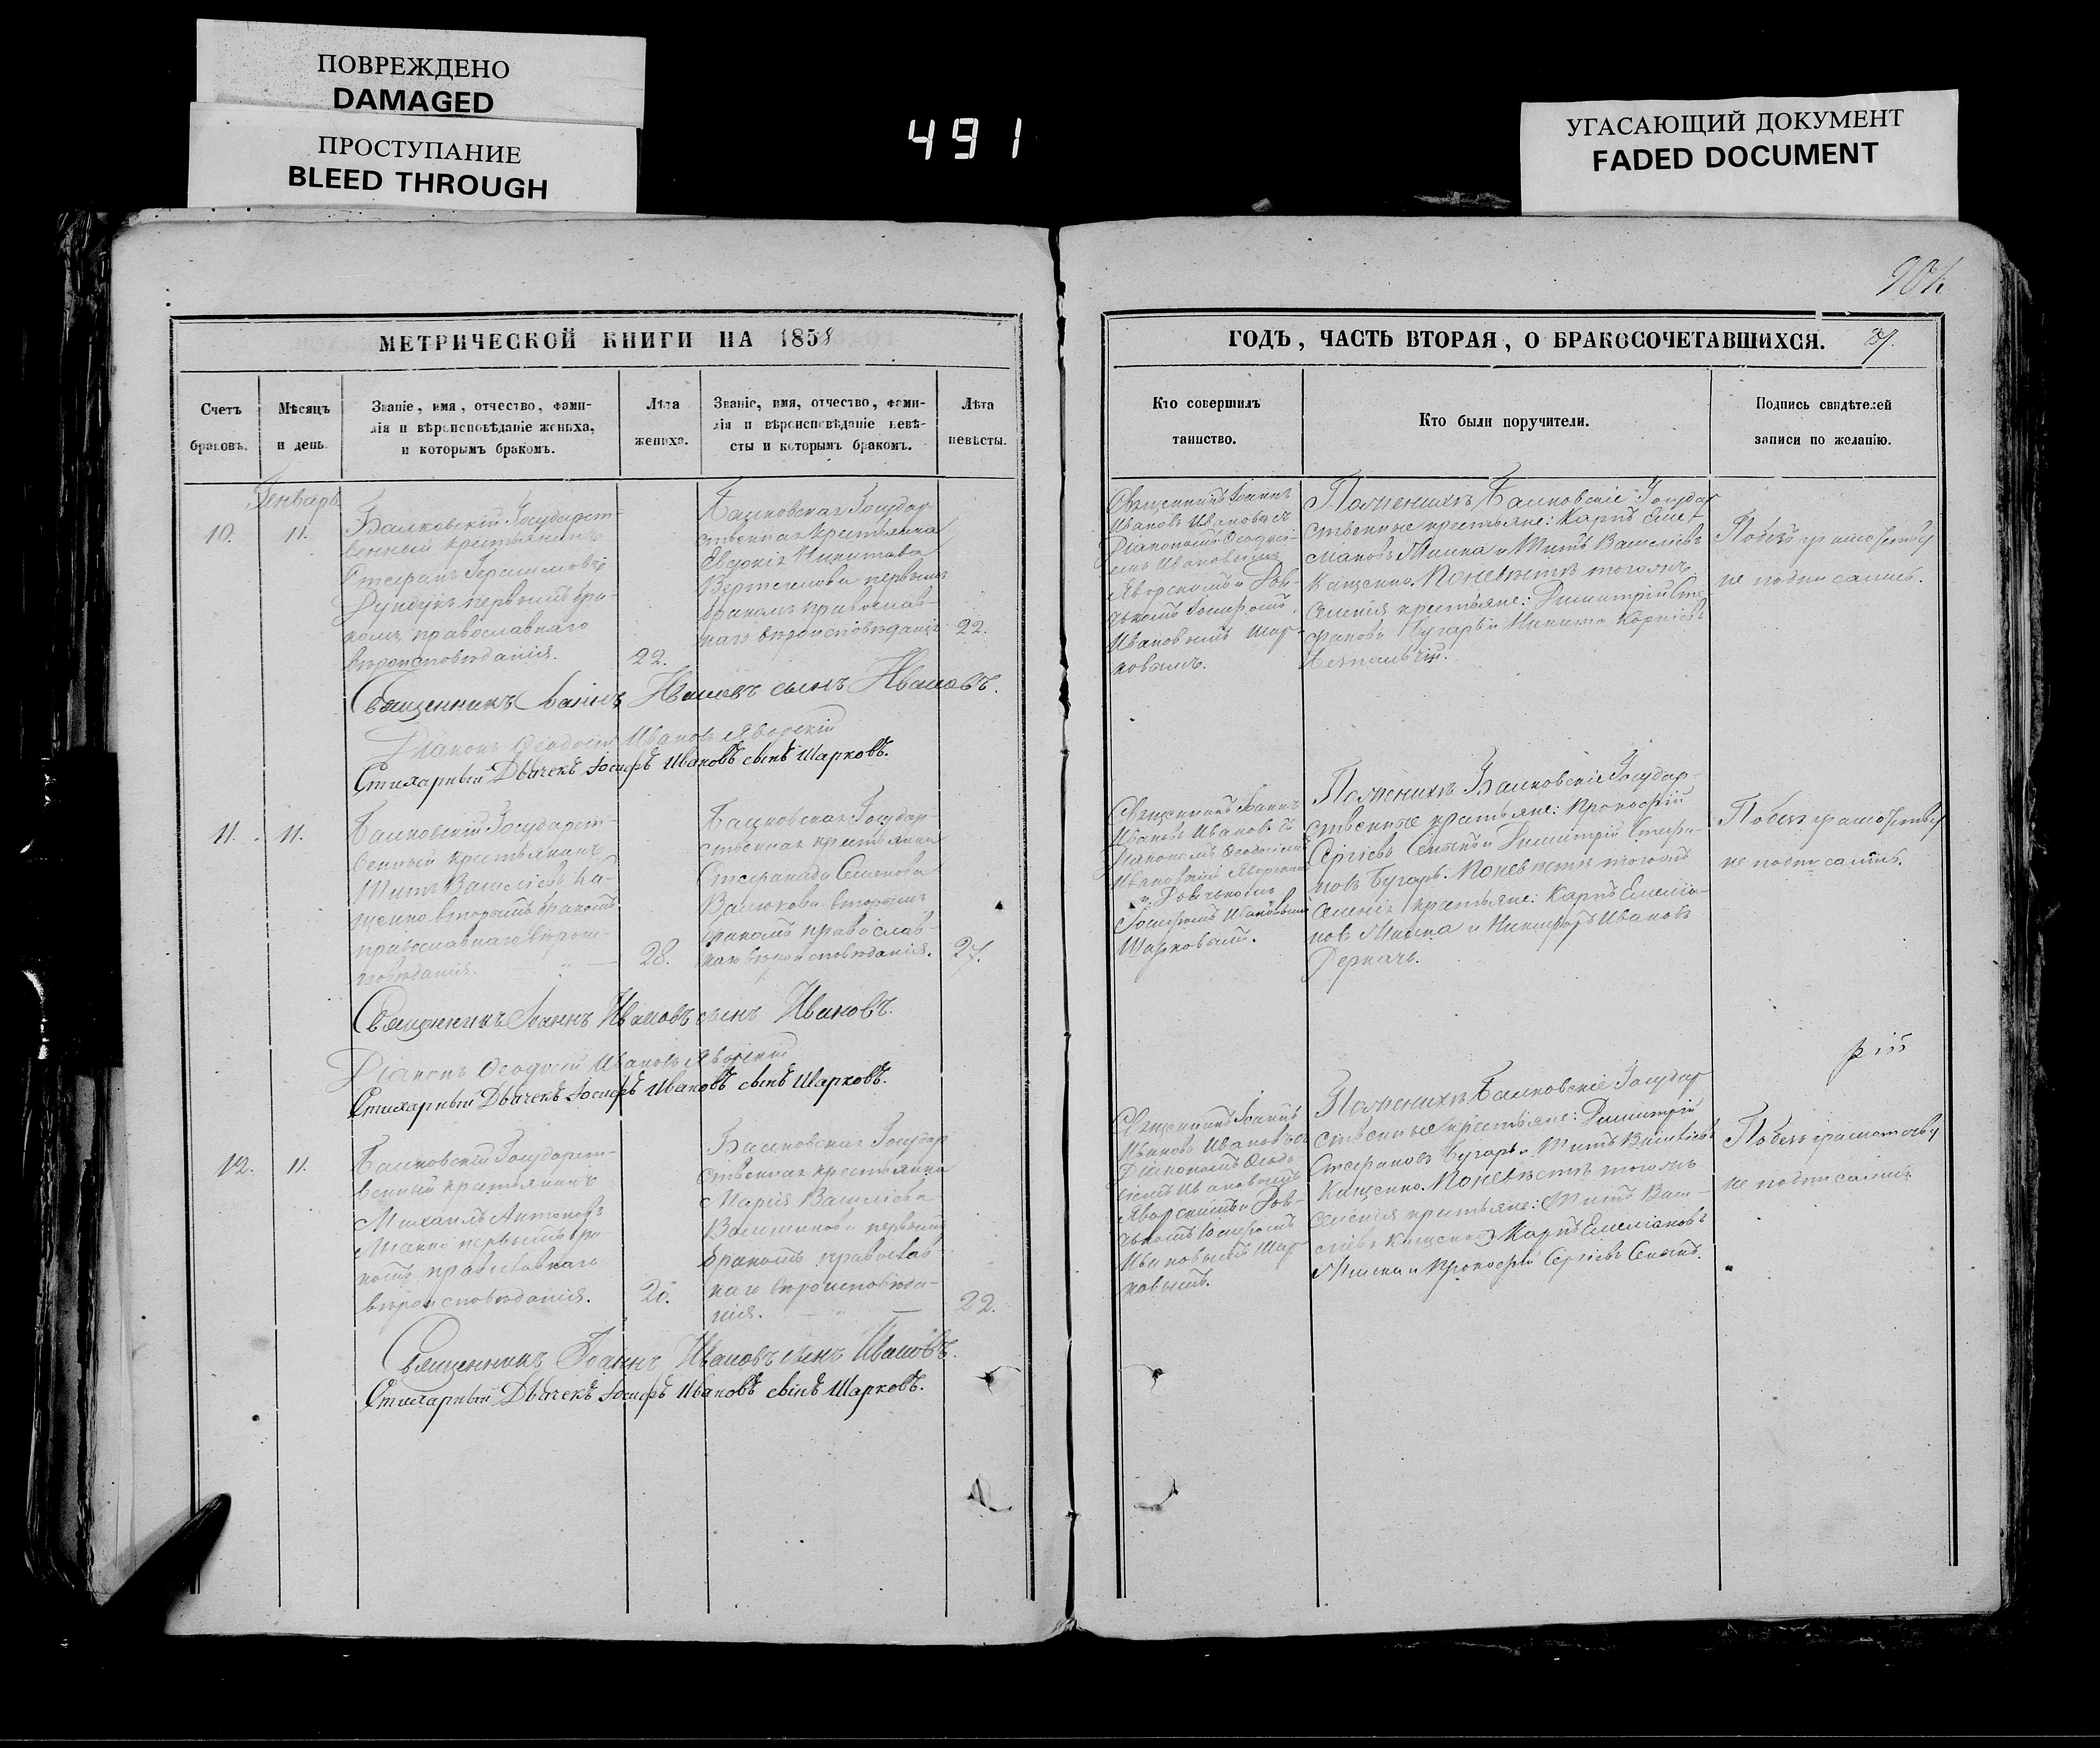 ПОВРЕЖДЕНО
DAMAGED
ПРОСТУПАНИЕ
BLEED THROUGH
491
УГАСАЮЩИЙ ДОКУМЕНТ
FADED DOCUMENT
МЕТРИЧЕСКОЙ КНИГИ НА 1858
Счетъ
браковъ.
Мѣсяцъ
и день.
Званіе, имя, отчество, фами-
лія и вѣроисповѣданіе жениха,
и которымъ бракомъ.
Лѣта
жениха.
Званіе, имя, отчество, фами-
лія и вѣроисповѣданіе невѣ-
сты и которымъ бракомъ.
Лѣта
невѣсты.
Генварь
10. 11.
Балковскій Государст-
венный крестьянинъ
Стефанъ Герасимовъ
Дундукъ первымъ бра-
комъ, православнаго
вѣроисповѣданія.
22.
Балковская Государ-
ственная крестьянка
Евдокія Никитова
первымъ
бракомъ православ-
наго вѣроисповѣданія
22.
Священникъ Іоаннъ Ивановъ сынъ Ивановъ.
Діаконъ Ѳеодосій Ивановъ Яворскій
Стихарный Дьячекъ Іосифъ Ивановъ сынъ Шарковъ.
11. 11.
Балковскій Государст-
венный крестьянинъ
Титъ Василіевъ Ка-
щенко вторымъ бракомъ
православнаго вѣроис-
повѣданія.
28.
Балковская Государ-
ственная крестьянка
Стефанида Семенова
вторымъ
бракомъ православ-
наго вѣроисповѣданія.
27.
Священникъ Іоаннъ Ивановъ сынъ Ивановъ.
Діаконъ Ѳеодосій Ивановъ Яворскій
Стихарный Дьячекъ Іосифъ Ивановъ сынъ Шарковъ.
12. 11.
Балковскій Государст-
венный крестьянинъ
Михаилъ Антоновъ
первымъ бра
комъ православнаго
вѣроисповѣданія.
20.
Балковская Государ
ственная крестьянка
Марія Василіева
первымъ
бракомъ православ
наго вѣроисповѣда-
нія.
22.
Священникъ Іоаннъ Ивановъ сынъ Ивановъ.
Стихарный Дьячекъ Іосифъ Ивановъ сынъ Шарковъ.
ГОДЪ, ЧАСТЬ ВТОРАЯ, О БРАКОСОЧЕТАВШИХСЯ.
Кто совершилъ
таинство.
Кто были поручители.
Подпись свидѣтелей
записи по желанію.
Священникъ Іоаннъ
Ивановъ Ивановъ съ
Діакономъ Ѳеодосі-
емъ Ивановымъ
Яворскимъ и Дья-
чкомъ Іосифомъ
Ивановымъ Шар-
ковымъ.
По женихѣ Балковскіе Государ
ственные крестьяне: Карпъ Емел
ліановъ и Титъ Василіевъ
Кащенко. По невѣстѣ тогожъ
селенія крестьяне: Димитрій Сте
фановъ Бугаръ и Никита Корніевъ
Безпальчій.
По безграмотству
не подписались.
Священникъ Іоаннъ
Ивановъ Ивановъ съ
Діакономъ Ѳеодосіемъ
Ивановымъ Яворскимъ
и Дьячкомъ
Іосифомъ Ивановымъ
Шарковымъ.
По женихѣ Балковскіе Государ-
ственные крестьяне: Прокофій
Сергіевъ и Димитрій Стефа-
новъ Бугаръ. По невѣстѣ тогожъ
селенія крестьяне: Карпъ Емеліа-
новъ и Никифоръ Ивановъ
Деркачъ.
По безграмотству
не подписались.
Священникъ Іоаннъ
Ивановъ Ивановъ съ
Діакономъ Ѳеодо
сіемъ Ивановымъ
Яворскимъ и Дья-
чкомъ Іосифомъ
Ивановымъ Шар
ковымъ.
По женихѣ Балковскіе Государ
ственные крестьяне: Димитрій
Стефановъ Бугаръ и Титъ Василіевъ
Кащенко. По невѣстѣ тогожъ
селенія крестьяне: Титъ Васи-
ліевъ Кащенко, Карпъ Емеліановъ
и Прокофій Сергіевъ
По безграмотству
не подписались.